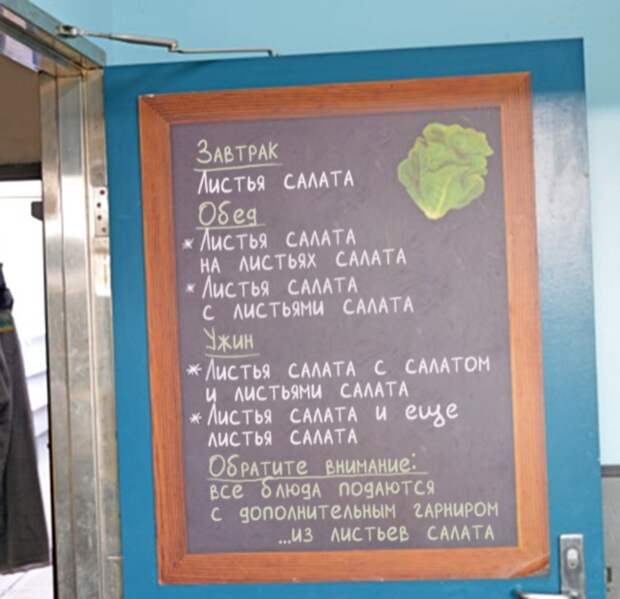 Завтрак
Листья салата
Обед
*Листья салата
на листьях салата
*Листья салата
с листьями салата
Ужин
*Листья салата с салатом
и листьями салата
*Листья салата и еще
листья салата
Обратите внимание:
все блюда подаются
с дополнительным гарниром
...из листьев салата